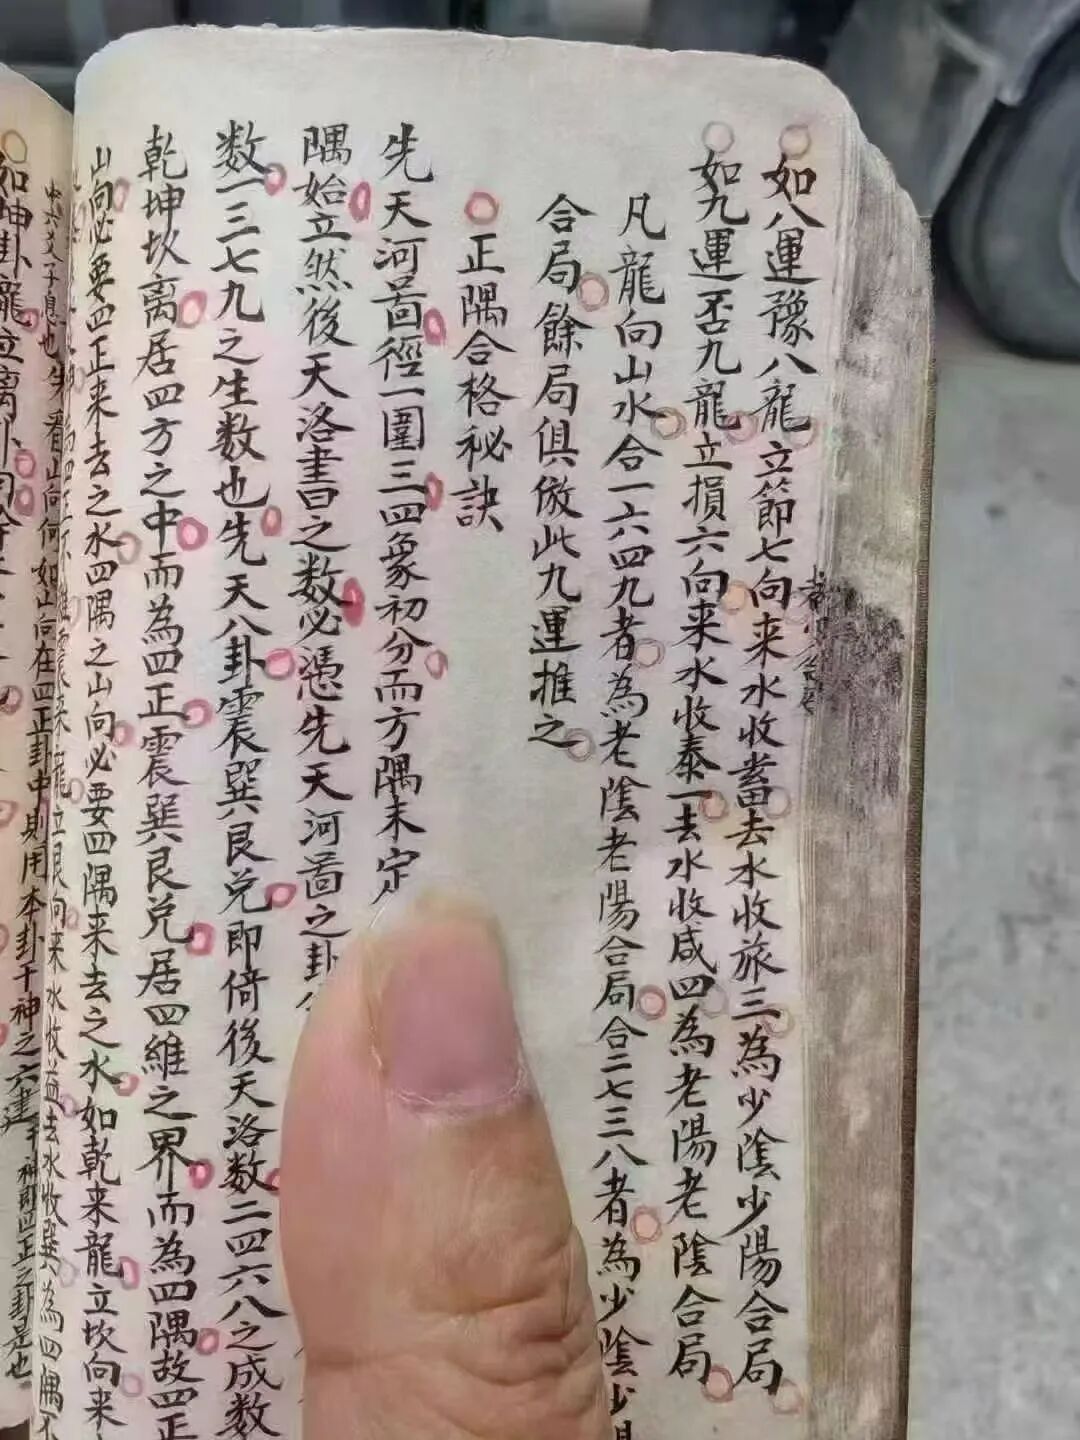 如八運豫八龍立節七向来水收蓄去水收旅三為少陰少陽合局
如九運否九龍立損六向来水收泰一去水收咸四為老陽老陰合局
凡龍向山水合一六四九者為老陰老陽合局合二七三八者為少陰少
合局餘局俱倣此九運推之
正隅合格秘訣
先天河啚徑一圍三四象初分而方隅未定
隅始立然後天洛書曰之数必憑先天河啚之卦
数一三七九之生数也先天八卦震巽艮兑即倚後天洛数二四六八之成数
乾坤坎离居四方之中而為四正震巽艮兑居四維之界而為四隅故四正
山向必要四正来去之水四隅之山向必要四隅来去之水如乾来龍立坎向来
震来龍立艮向来水收益去水收巽為四隅
中六爻子息也先看山向何如山向在四正卦中則用本卦干神之六建
如坤卦龍立离卦